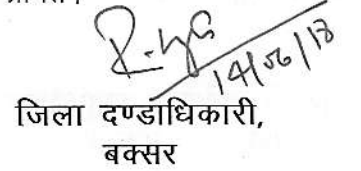 14/06/18
जिला दण्डाधिकारी,
बक्सर